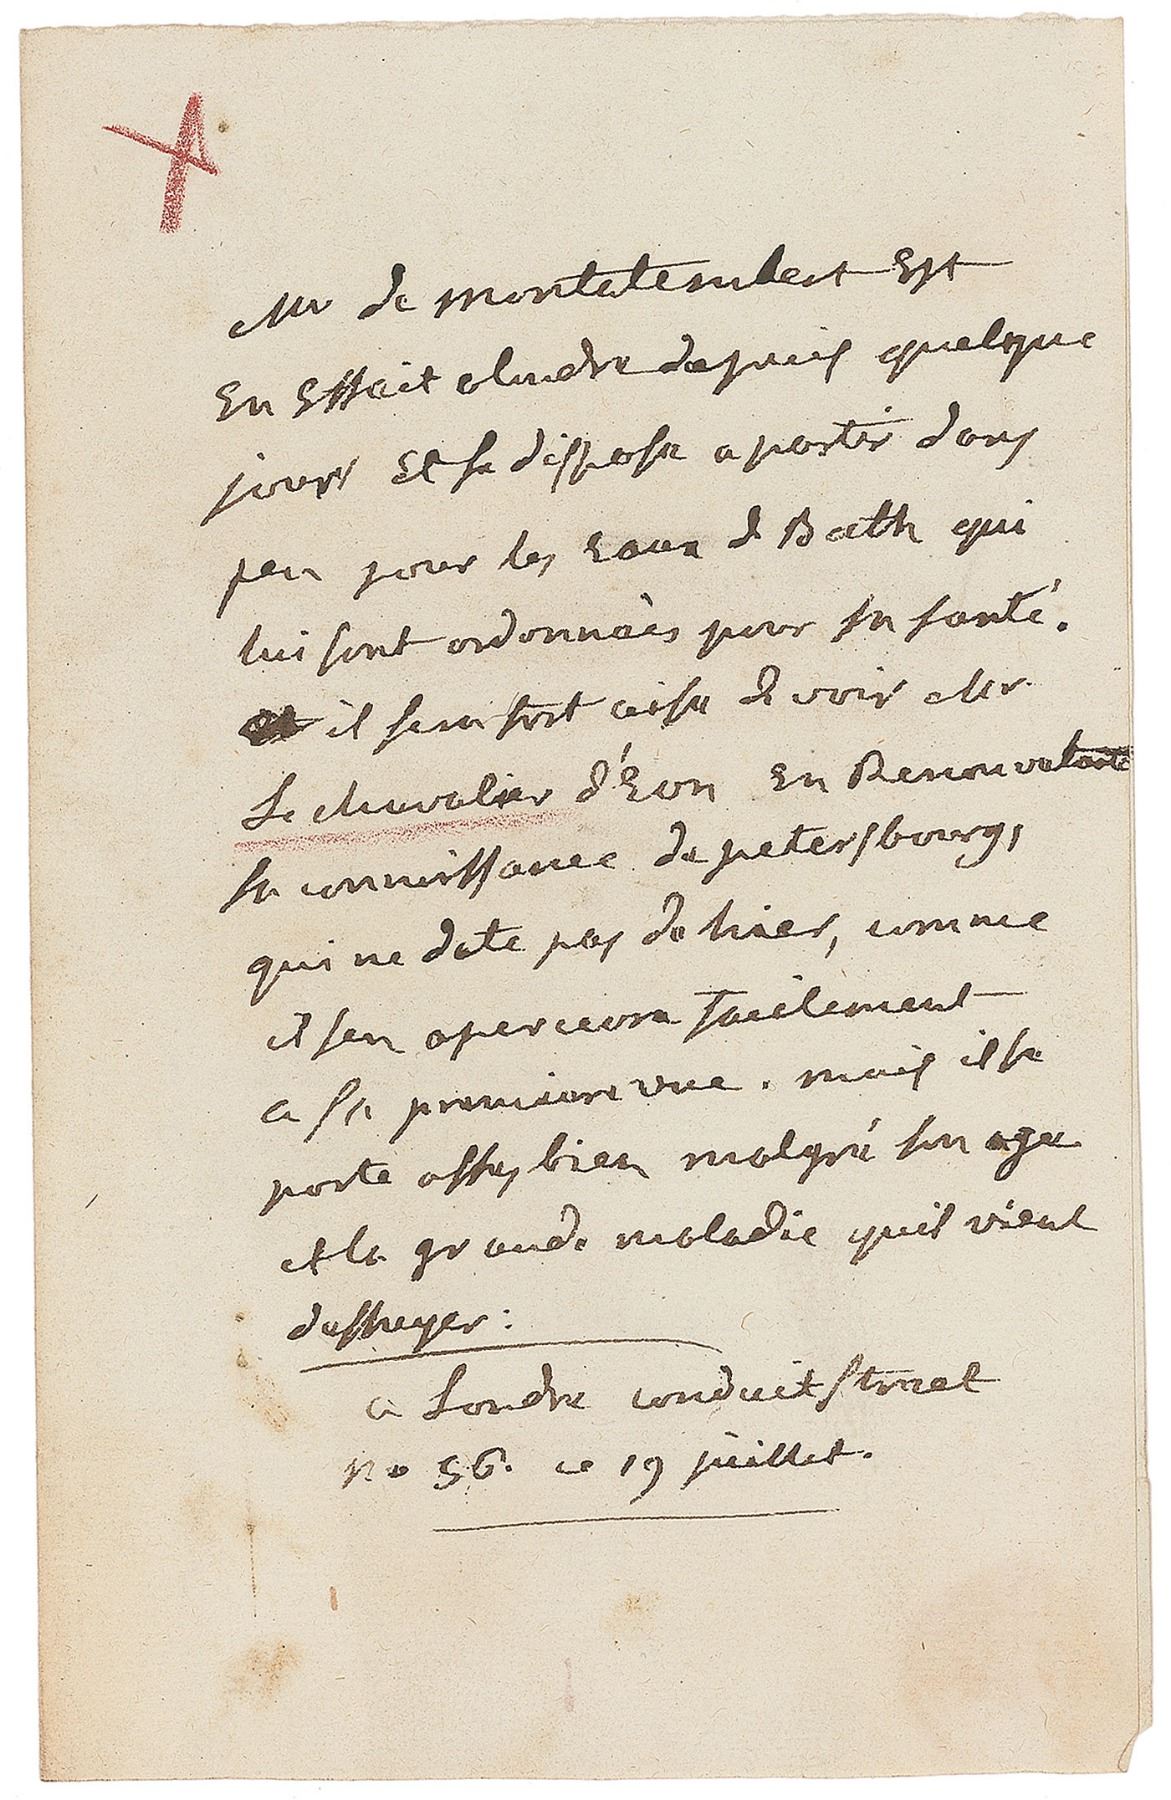 Mr de montalembert Est
En Effait a londre depuis quelque
jours Et se dispose a partir dans
peu pour les Eaux de Bath qui
lui sont ordonnées pour sa santé.
il sera fort aise de voir Mr.
Le chevalier d'Eon En Renouvelant
sa connoissance de petersbourg,
qui ne date pas de hier, comme
il sen apercevra facilement
a sa premiere vue. mais il se
porte assez bien malgré son age
et la grande maladie quil vient
dessuyer :
a Londre conduit street
no 56. ce 19 juillet.